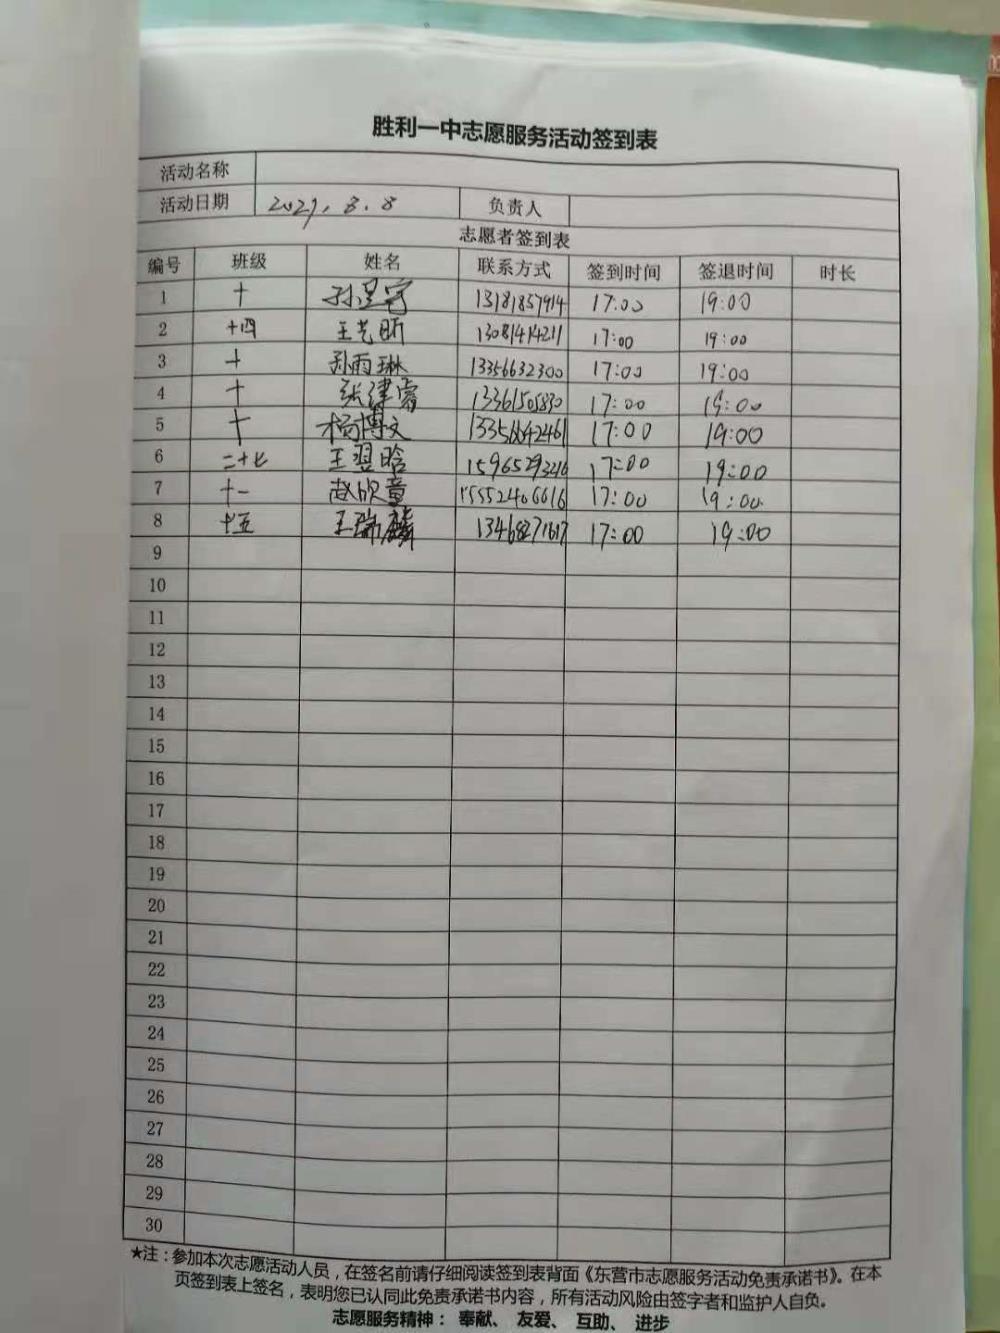 胜利一中志愿服务活动签到表
活动名称
活动日期 2021.3.8 负责人
志愿者签到表
编号 班级 姓名 联系方式 签到时间 签退时间 时长
1 十 13181857914 17:00 19:00
2 十四 王艺昕 13081414211 17:00 19:00
3 十 孙雨琳 13356632300 17:00 19:00
4 十 张津睿 13361505830 17:00 19:00
5 十 杨博文 13356642461 17:00 19:00
6 二十七 王翌晗 15965293246 17:00 19:00
7 十一 赵欣童 15552406616 17:00 19:00
8 十五 王瑞麟 17:00 19:00
9
10
11
12
13
14
15
16
17
18
19
20
21
22
23
24
25
26
27
28
29
30
★注：参加本次志愿活动人员，在签名前请仔细阅读签到表背面《东营市志愿服务活动免责承诺书》。在本
页签到表上签名，表明您已认同此免责承诺书内容，所有活动风险由签字者和监护人自负。
志愿服务精神： 奉献、 友爱、 互助、 进步